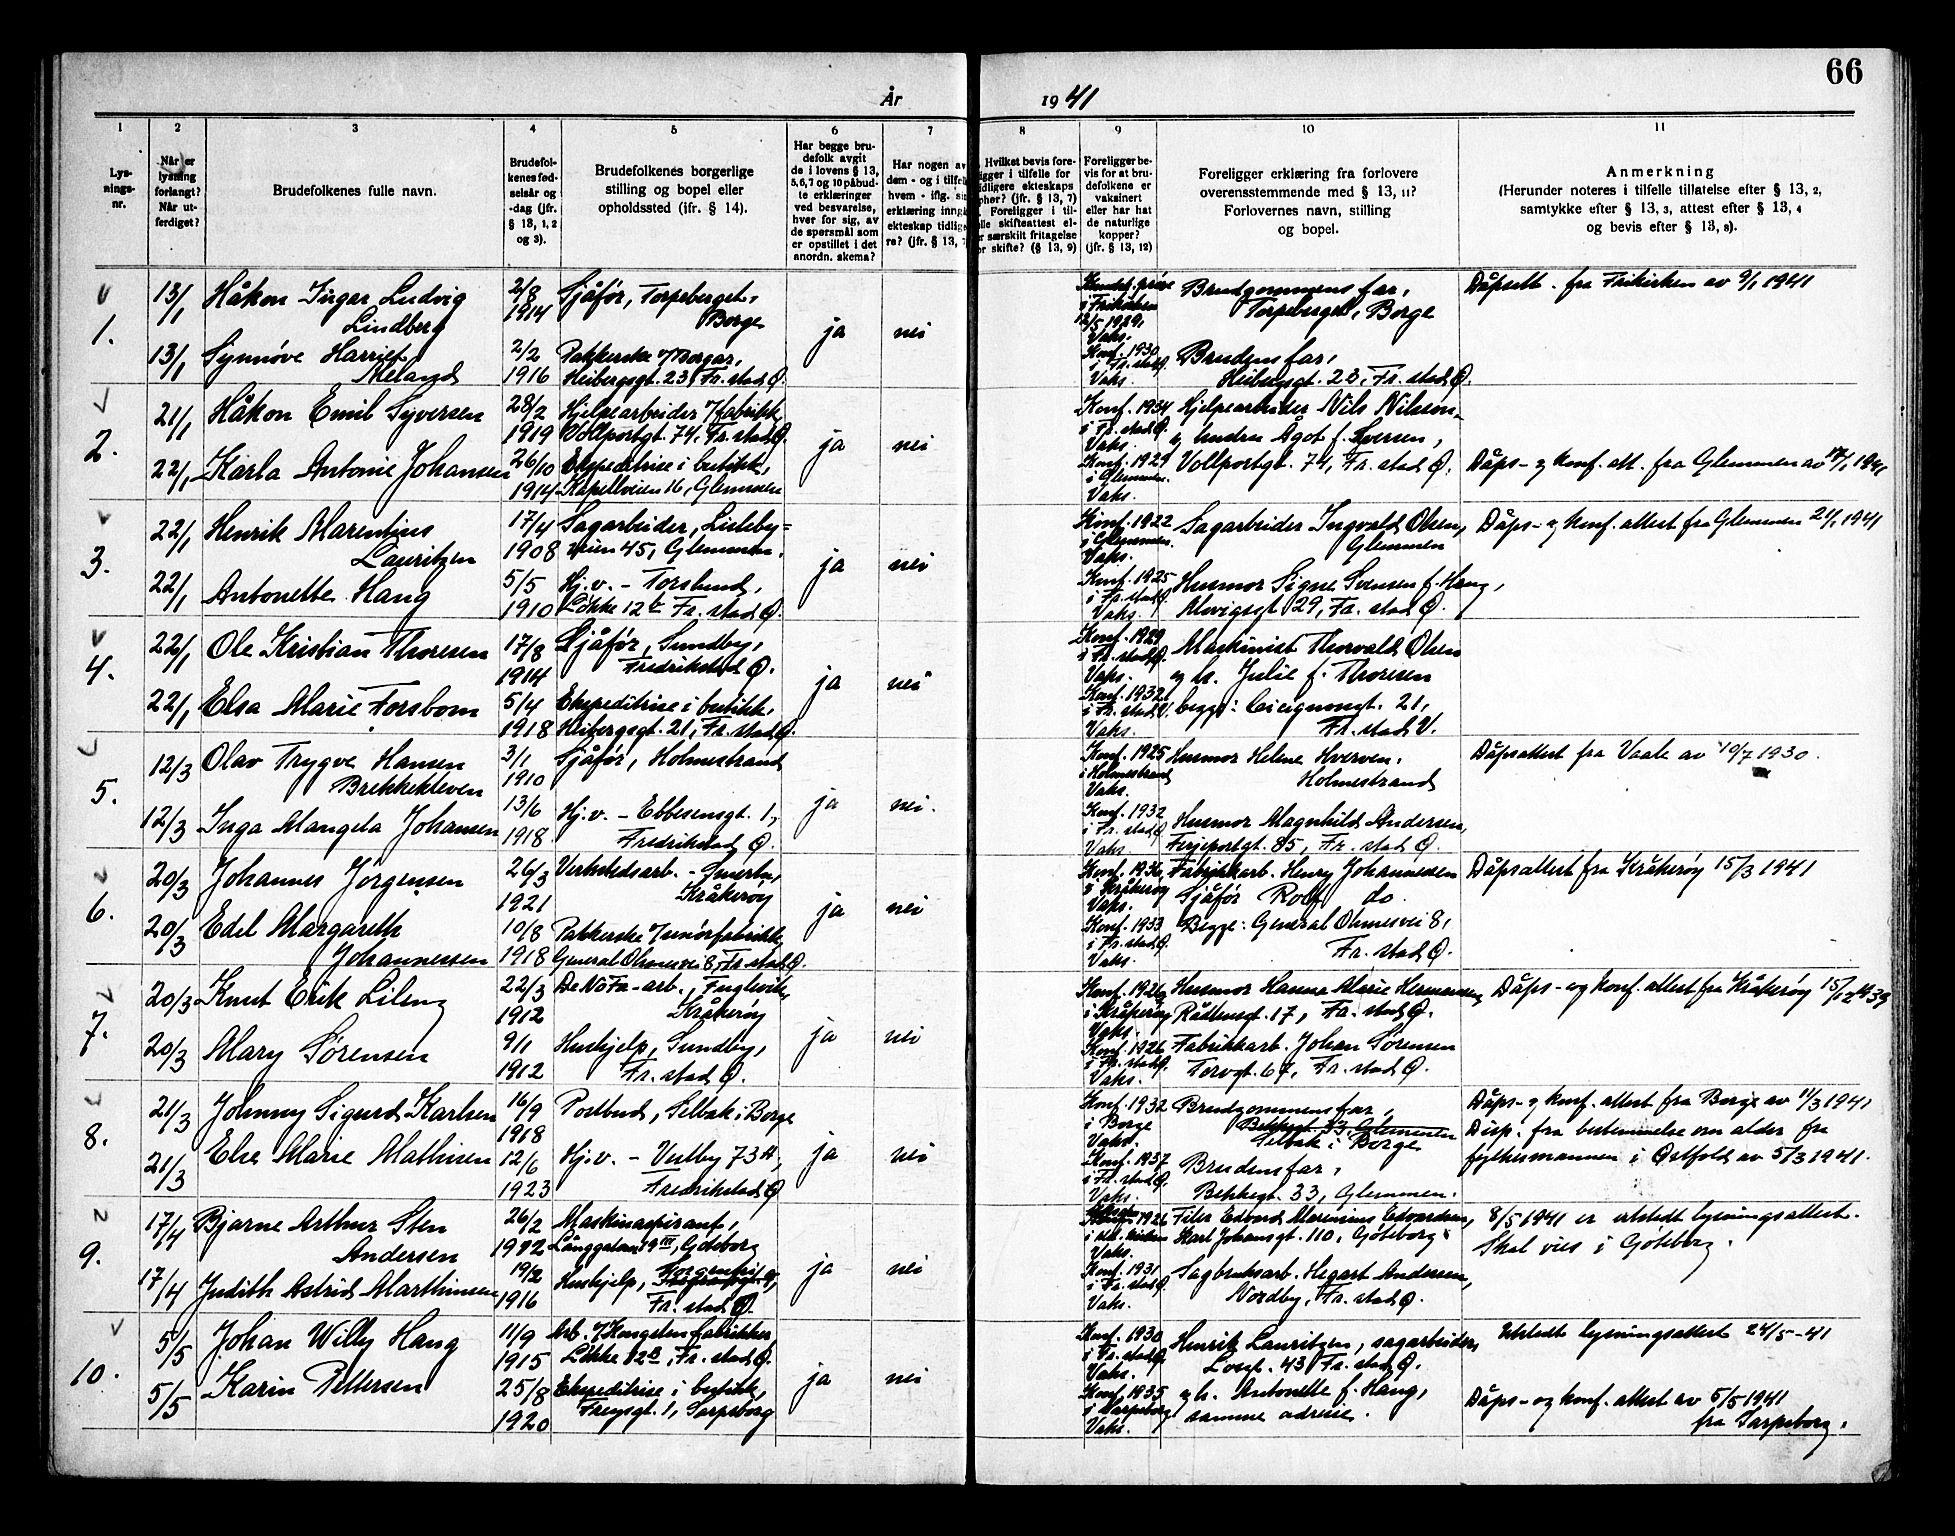 66
År 1941
1 2 3 4 5 6 7 8 9 10 11
Lys-
nings-
nr.
Når er
lysning
forlangt?
Når ut-
ferdiget?
Brudefolkenes fulle navn.
Brudefol-
kenes fød-
selsår og
-dag (jfr.
§ 13, 1, 2
og 3).
Brudefolkenes borgerlige
stilling og bopel eller
opholdssted (ifr. § 14).
Har begge bru-
defolk avgit
de i lovens § 13,
5,6,7 og 10 påbud-
te erklæringer
ved besvarelse,
hver for sig, av
de spørsmål som
er opstillet i det
anordn. skema?
Har nogen av
dem - og i tilfelle
hvem - iflg. sin
erklæring inngå
ekteskap tidlige-
re? (jfr. § 13, 7
Hvilket bevis fore-
ligger i tilfelle for
tidligere ekteskaps
ophør? (jfr. § 13, 7)
Foreligger i til-
felle skifteattest el-
ler særskilt fritagelse
for skifte? (§ 13, 9)
Foreligger be-
vis for at bru-
defolkene er
vaksinert
eller har hat
de naturlige
kopper?
(jfr. § 13, 12)
Foreligger erklæring fra forlovere
overensstemmende med § 13, 11?
Forlovernes navn, stilling
og bopel.
Anmerkning
(Herunder noteres i tilfelle tillatelse efter § 13, 2,
samtykke efter § 13, 3, attest efter § 13, 4
og bevis efter § 13, 8).
1.
13/1 Håkon Ingar Ludvig
Lindberg
2/8
1914
Sjåfør, Torpeberget,
Borge
ja nei
i Frikirken
12/5 1929,
Vaks.
Brudgommens far,
Torpeberget, Borge
Dåpsatt. fra Frikirken av 9/1 1941
13/1 Synnøve Harriet
Meland
2/2
1916
Pakkerske v/Borgar,
Heibergsgt. 23, Fr.stad Ø.
Konf. 1930
i Fr.stad Ø
Vaks.
Brudens far,
Heibergsgt. 23, Fr.stad Ø.
2.
21/1 Håkon Emil Syversen
28/2
1919
Hjelpearbeider v/fabrikk,
Vollportgt. 74, Fr.stad Ø.
ja nei
Konf. 1934
i Fr.stad Ø.
Vaks.
Hjelpearbeider Nils Nilsson
og hustru Ågot f. Syversen,
22/1 Karla Antonie Johansen
26/10
1914
Ekspeditrise i butikk,
Kapellveien 16, Glemmen
Konf. 1929
i Glemmen.
Vaks.
Vollportgt. 74, Fr.stad Ø.
Dåps- og konf. att. fra Glemmen av 17/1 1941
3.
22/1 Henrik Marentius
Lauritzen
17/4
1908
Sagarbeider, Lisleby=
veien 45, Glemmen.
ja nei
Konf. 1922
i Glemmen.
Vaks.
Sagarbeider Ingvald Olsen,
Glemmen
Dåps- og konf. attest fra Glemmen 21/1 1941
22/1 Antonette Haug
5/5
1910
Hj.v. - Torslund,
Løkke 12 Fr.stad Ø.
Konf. 1925
i Fr.stad Ø.
Vaks.
Husmor Signe Svensen f. Haug,
Alvigsgt 29, Fr.stad Ø.
4.
22/1 Ole Kristian Thoresen
17/8
1914
Sjåfør, Sundby,
Fredrikstad Ø.
ja nei
Konf. 1929
i Fr.stad Ø.
Vaks.
Maskinist Thorvald Olsen
og h. Julie f. Thoresen
22/1 Elsa Marie Forsbom
5/4
1918
Ekspeditrise i butikk,
Heibergsgt. 21, Fr.stad Ø.
Konf. 1932
i Fr.stad V.
Vaks.
begge: Cicignonsgt. 21,
Fr.stad V.
5.
12/3 Olav Trygve Hansen
Brekkekleven
3/1
1910
Sjåfør, Holmestrand
ja nei.
Konf. 1925
i Holmestrand
Vaks.
Husmor Helene Hverven,
Holmestrand
Dåpsattest fra Vaale av 10/7 1930.
12/3 Inga Mangela Johansen
13/6
1918
Hj.v. - Ebbesensgt. 1,
Fredrikstad Ø.
Konf. 1932
i Fr.stad Ø
Vaks
Husmor Magnhild Andersen,
Ferjeportgt. 85, Fr.stad Ø.
6.
20/3 Johannes Jørgensen
26/3
1921
Verkstedsarb. - Smerta,
Kråkerøy
ja nei
Konf. 1936
i Kråkerøy
Vaks.
Fabrikkarb. Henry Johannessen
Sjåfør Rolf do.
Dåpsattest fra Kråkerøy 15/3 1941
20/3 Edel Margareth
Johannessen
10/8
1918
Pakkerske v/snørfabrikk,
General Ohmesvei 8, Fr.stad Ø.
Konf. 1933
i Fr.stad Ø.
Vaks.
Begge: General Ohmesvei 8,
Fr.stad Ø.
7.
20/3 Knut Erik Lileng
22/3
1912
De No Fa-arb., Fuglevik,
Kråkerøy
ja nei
Konf. 1926
i Kråkerøy
Vaks.
Husmor Hanna Marie Hermansen,
Rådhusgt. 17, Fr.stad Ø.
Dåps- og konf. attest fra Kråkerøy 15/12 1939
20/3 Mary Sørensen
9/1
1912
Hushjelp, Sundby,
Fr.stad Ø.
Konf. 1926
i Fr.stad Ø.
Vaks.
Fabrikkarb. Johan Sørensen
Torvgt. 67, Fr.stad Ø.
8.
21/3 Johnny Sigurd Karlsen
16/9
1918
Postbud, Selbak i Borge
ja nei
Konf. 1932
i Borge
Vaks.
Brudgommens far,
Bekkegt. 33, Glemmen
Selbak i Borge
Dåps- og konf. attest fra Borge av 11/3 1941
Disp. fra bestemmelse om alder fra
fylkesmannen i Østfold av 5/3 1941.
21/3 Else Marie Mathisen
12/6
1923
Hj.v. - Vestby 73A,
Fredrikstad Ø
Konf. 1937
i Fr.stad Ø.
Vaks.
Brudens far,
Bekkegt. 33, Glemmen.
9.
17/4 Bjarne Arthur Sten
Andersen
26/2
1912
Maskinaspirant,
Långgatan 39 III, Göteborg
ja nei
1926
Vaks.
Filer Edvard Marinius Edvardsen,
Karl Johansgt. 110, Göteborg.
8/5 1941 er utstedt lysningsattest.
Skal vies i Göteborg.
17/4 Judith Astrid Marthinsen
19/2
1916
Hushjelp,
Fr.stad Ø.
Konf. 1931
i Fr.stad Ø
Vaks.
Sagbruksarb. Hegart Andersen,
Nordby, Fr.stad Ø.
10.
5/5 Johan Willy Haug
11/9
1915
Arb. v/Kongsten fabrikker,
Løkke 12B, Fr.stad Ø.
ja nei
Konf. 1930
i Fr.stad Ø
Vaks.
Henrik Lauritzen, sagarbeider,
43 Fr.stad Ø.
Utstedt lysningsattest 24/5-41
5/5 Karin Pettersen
25/8
1920
Ekspeditrise i butikk,
Freysgt. 1, Sarpsborg
Konf. 1935
i Sarpsborg
Vaks.
og h. Antonette f. Haug,
samme adresse.
Dåps- og konf. attest av 5/5 1941
fra Sarpsborg.